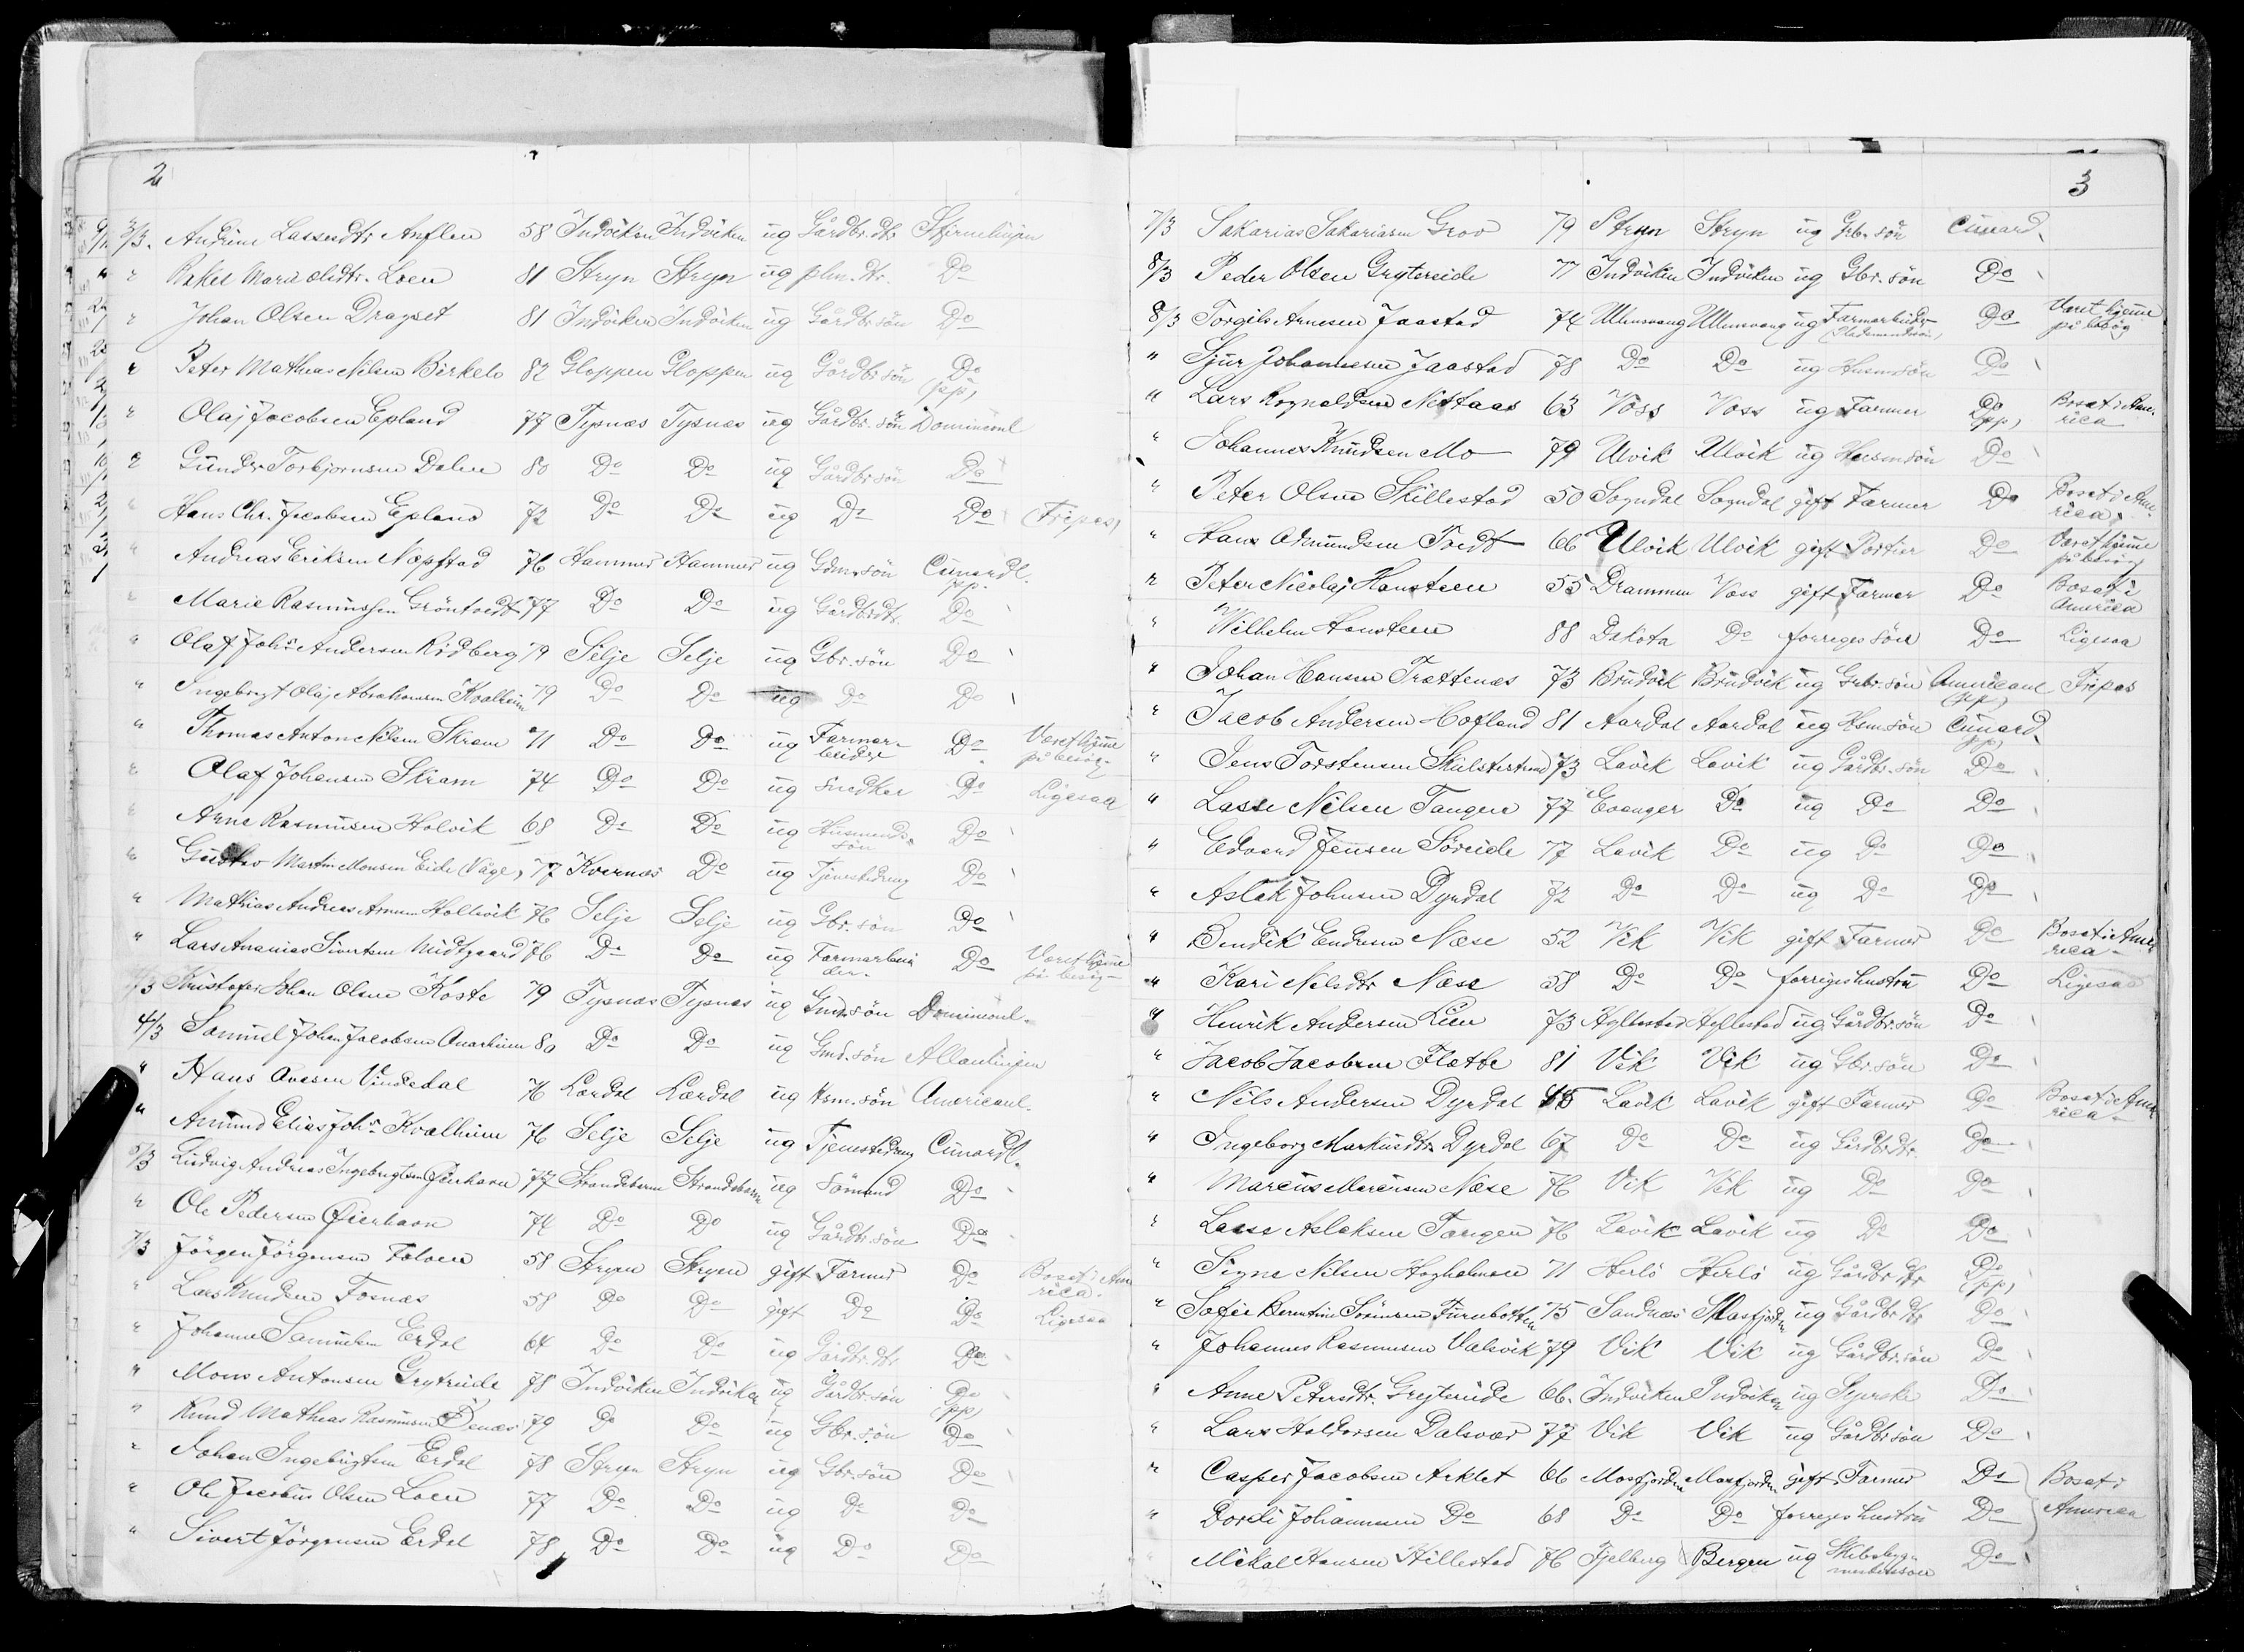 2
3/3. Andrine Lassesdtr Anflen 58 Indviken Indviken ug Gårdbr.dtr Stjernelinjen
" Rakel Marie Olsdtr. Loen 81 Stryn Stryn ug plm.dtr. Do
" Johan Olsen Dragset 81 Indviken Indviken ug Gårdbr.sön Do
" Peter Mathias Nilsen Birkelo 82 Gloppen Gloppen ug Gårdbr.sön Do (pp)
" Olaj Jacobsen Epland 77 Tysnæs Tysnæs ug Gårdbr.sön Dominionl
" Gunder Torbjornsen Dalen 80 Do Do ug Gårdbr.sön Do
" Hans Chr. Jacobsen Epland 72 Do Do ug Do Do Fripas
" Andreas Eriksen Nøpstad 76 Hammer Hammer ug Gdm.sön Cunardl. pp.
" Marie Rasmussen Gröntvedt 77 Do Do ug Gårdbrdtr. Do
" Olaf Johs Andersen Rödberg 79 Selje Selje ug Gbr.sön Do
" Ingebrigt Olaj Abrahamsen Kvalheim 79 Do Do ug Do Do
" Thomas Anton Nilsen Skram 71 Do Do ug Farmarbeider Do Været hjeme på besög
" Olaf Johansen Skram 74 Do Do ug Snedker Do Ligesaa
" Arne Rasmusen Holvik 68 Do Do ug Husmands.sön Do
" Gustav Martin Monsen Eide (Våge) 77 Kvernæs Do ug Tjenestedreng Do
" Mathias Andreas Arnesen Hollevik 76 Selje Selje ug Gbr.sön Do
" Lars Ananias Sivertsen Midtgaard 76 Do Do ug Farmarbeider Do Været hjeme på besög
4/3 Kristofer Johan Olsen Koste 79 Tysnæs Tysnæs ug Gmd.sön Dominionl.
4/3 Samuel Johan Jacobsen Anarheim 80 Do Do ug Gmd.sön Allanlinjen
" Hans Ovesen Vindedal 76 Lærdal Lærdal ug Hsm.sön Americanl.
" Amund Elias Johs Kvalheim 76 Selje Selje ug Tjenestedreng Cunardl.
5/3 Ludvig Andreas Ingebrigtsen Øierhavn 77 Strandebarm Strandebarm ug Sömand Do
" Ole Pedersen Øierhavn 74 Do Do ug Gårdbr.sön Do
7/3 Jörgen Jörgensen Tolven 58 Stryn Stryn gift Farmer Do Bosat i America.
" Lars Knudsen Fosnæs 58 Do Do gift Do Do Ligesaa
" Johanne Samuelsen Erdal 64 Do Do ug Gårdbr.dtr Do
" Mons Antonsen Grytreide 78 Indviken Indviken ug Gårdbr.sön Do (pp)
" Knud Mathias Rasmusen Denæs 79 Do Do ug Gbr.sön Do
" Johan Ingebrigtsen Erdal 78 Stryn Stryn ug Gbr.sön Do
" Ole Jacobus Olsen Loen 77 Do Do ug Do Do
" Sivert Jörgensen Erdal 78 Do Do ug Do Do
3
7/3 Sakarias Sakariasen Grov 79 Stryn Stryn ug Grbr.sön Cunard.
8/3 Peder Olsen Grytereide 77 Indviken Indviken ug Gbr.sön Do
8/3 Torgils Arnesen Jaastad 74 Ullensvang Ullensvang ug Farmarbeider (Plademandssön) Do Været hjeme på besög
" Sjur Johannesen Jaastad 78 Do Do ug Husm.sön Do
" Lars Rognaldsen Nestaas 63 Voss Voss ug Farmer Do (pp) Bosat i America
" Johannes Knudsen Mo 79 Ulvik Ulvik ug Husm.sön Do
" Peter Olsen Skillestad 50 Sogndal Sogndal gift Farmer Do Bosat i America
" Hans Osmundsen Tvedt 66 Ulvik Ulvik gift Portier Do Været hjeme på besög
" Peter Nicolaj Hansteen 55 Drammen Voss gift Farmer Do Bosat i America
" Wilhelm Hansteen 88 Dakota Do forriges sön Do Ligesaa
" Johan Hansen Trættenæs 73 Brudvik Brudvik ug Grbr.sön Americanl (pp) Fripas
" Jacob Andersen Hofland 81 Aardal Aardal ug Hsm.sön Cunard. (pp)
" Jens Torstensen Skulstestrand 73 Lavik Lavik ug Gårdbr.sön Do
" Lasse Nilsen Tangen 77 Evanger Do ug Do Do
" Edvard Jensen Söreide 77 Lavik Do ug Do Do
" Aslak Johnsen Dyrdal 72 Do Do ug Do Do
" Bendik Endresen Næse 52 Vik Vik gift Farmer Do Bosat i America
" Kari Nilsdtr Næse 58 Do Do forriges hustru Do Ligesaa
" Henrik Andersen Lien 73 Hyllestad Hyllestad ug Gårdbr.sön Do
" Jacob Jacobsen Flatbe 81 Vik Vik ug Gbr.sön Do
" Nils Andersen Dyrdal 45 Lavik Lavik gift Farmer Do Bosat i America
" Ingeborg Markusdtr Dyrdal 67 Do Do ug Gårdbr.dtr. Do
" Marcus Marcusen Næse 76 Vik Vik ug Do Do
" Lasse Aslaksen Tangen 76 Lavik Lavik ug Do Do
" Signe Nilsen Hogholmen 71 Herlö Herlö ug Gårdbr.dtr Do (pp)
" Sofie Berntine Sörensen Furebotten 75 Sandnæs Masfjorden ug Gårdbr.dtr Do
" Johannes Rasmusen Valsvik 79 Vik Vik ug Gårdbr.sön Do
" Anne Petersdtr. Greyterude 66. Indviken Indviken ug Syerske Do
" Lars Haldorsen Dalsvær 77 Vik Vik ug Gårdbr.sön Do
" Casper Jacobsen Areklet 66 Masfjorden Masfjorden gift Farmer Do Bosat i
" Dordi Johannesen Do 68 Do Do forriges hustru Do America
" Mikal Hansen Hillestad 76 Fjelberg Bergen ug Skibsbygmestersön Do